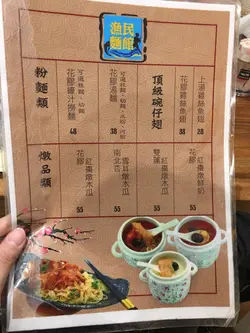 漁民
麵館
頂級碗仔翅
上湯雞絲魚翅 28
花膠雞絲魚翅 38
可選米線、幼麵、米粉、河粉
花膠湯麵
可選米線、幼麵
花膠蠔汁撈麵 48
粉麵類
花膠
紅棗燉鮮奶 55
雙蓮
紅棗燉木瓜 55
南北杏
雪耳燉木瓜 55
花膠
紅棗燉木瓜 55
燉品類